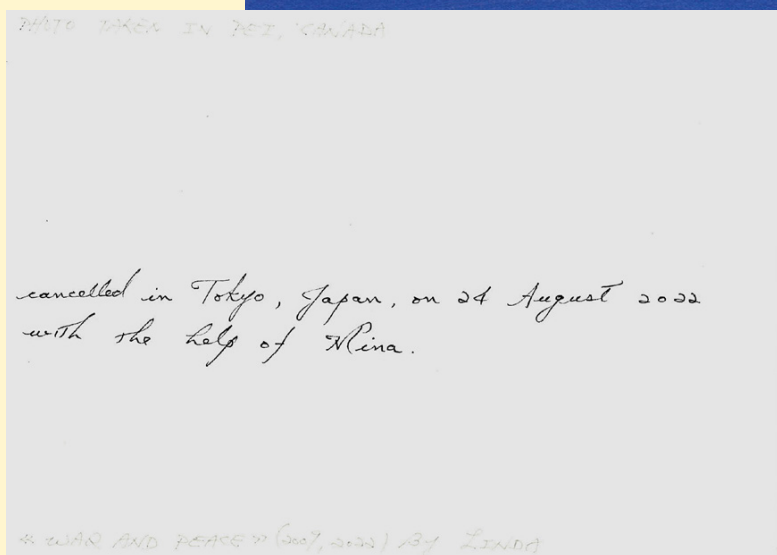 PHOTO TAKEN IN PEI, CANADA
cancelled in Tokyo, Japan, on 24 August 2022
with the help of Mina.
"WAR AND PEACE" (2007, 2022) BY LINDA